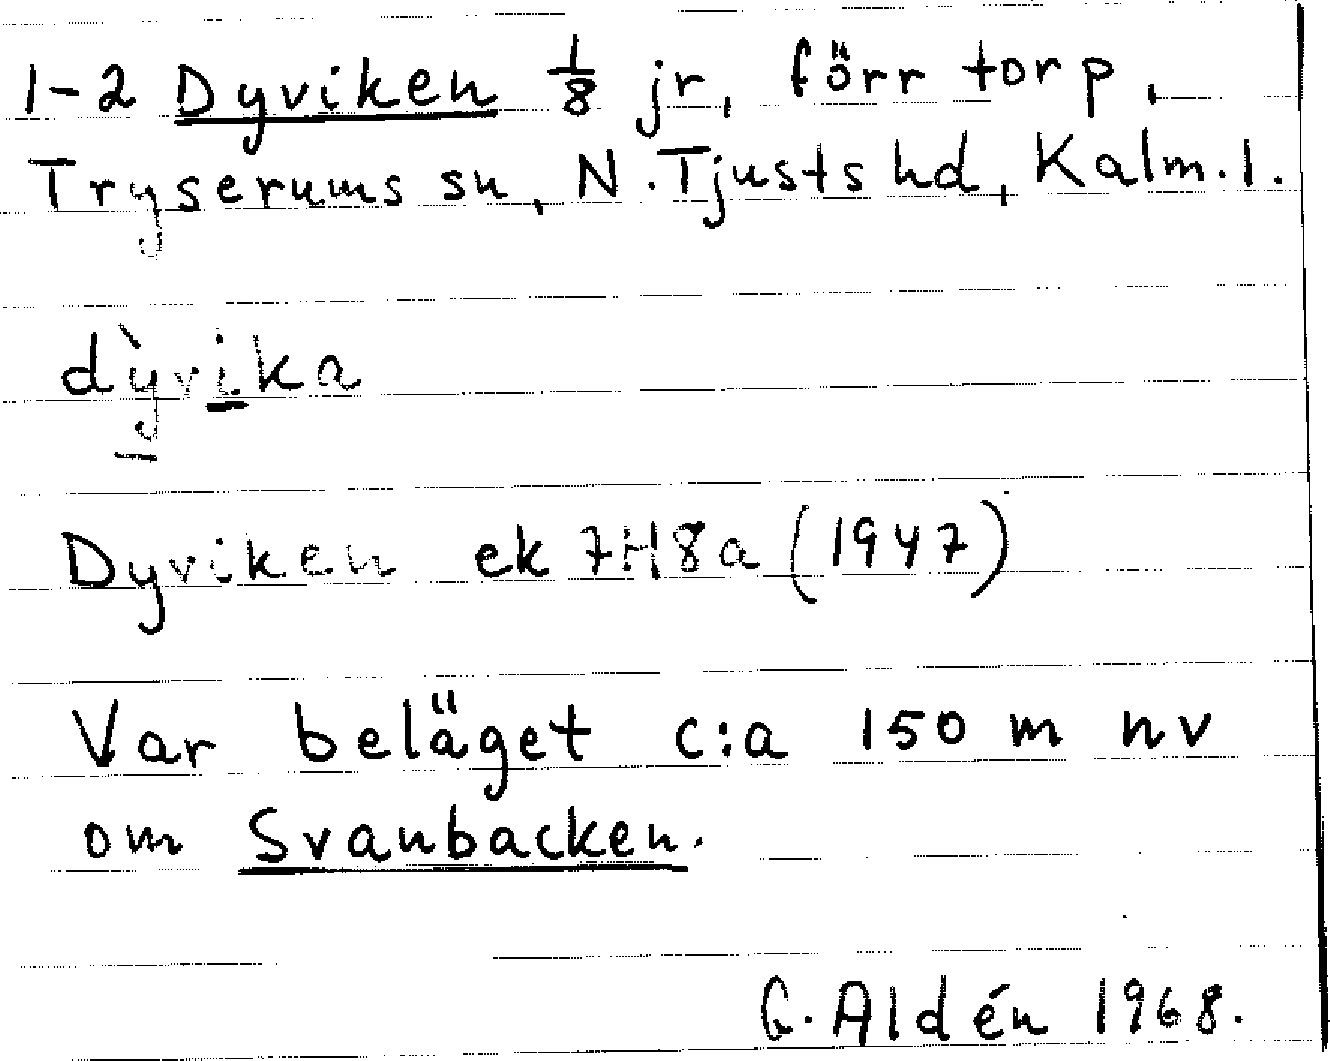 1-2 Dyviken 1/8 jr, förr torp,
Tryserums sn, N. Tjusts hd, Kalm. l.
dỳvika
Dyviken ek 7H8a (1947)
Var beläget c:a 150 m nv
om Svanbacken.
G. Aldén 1968.